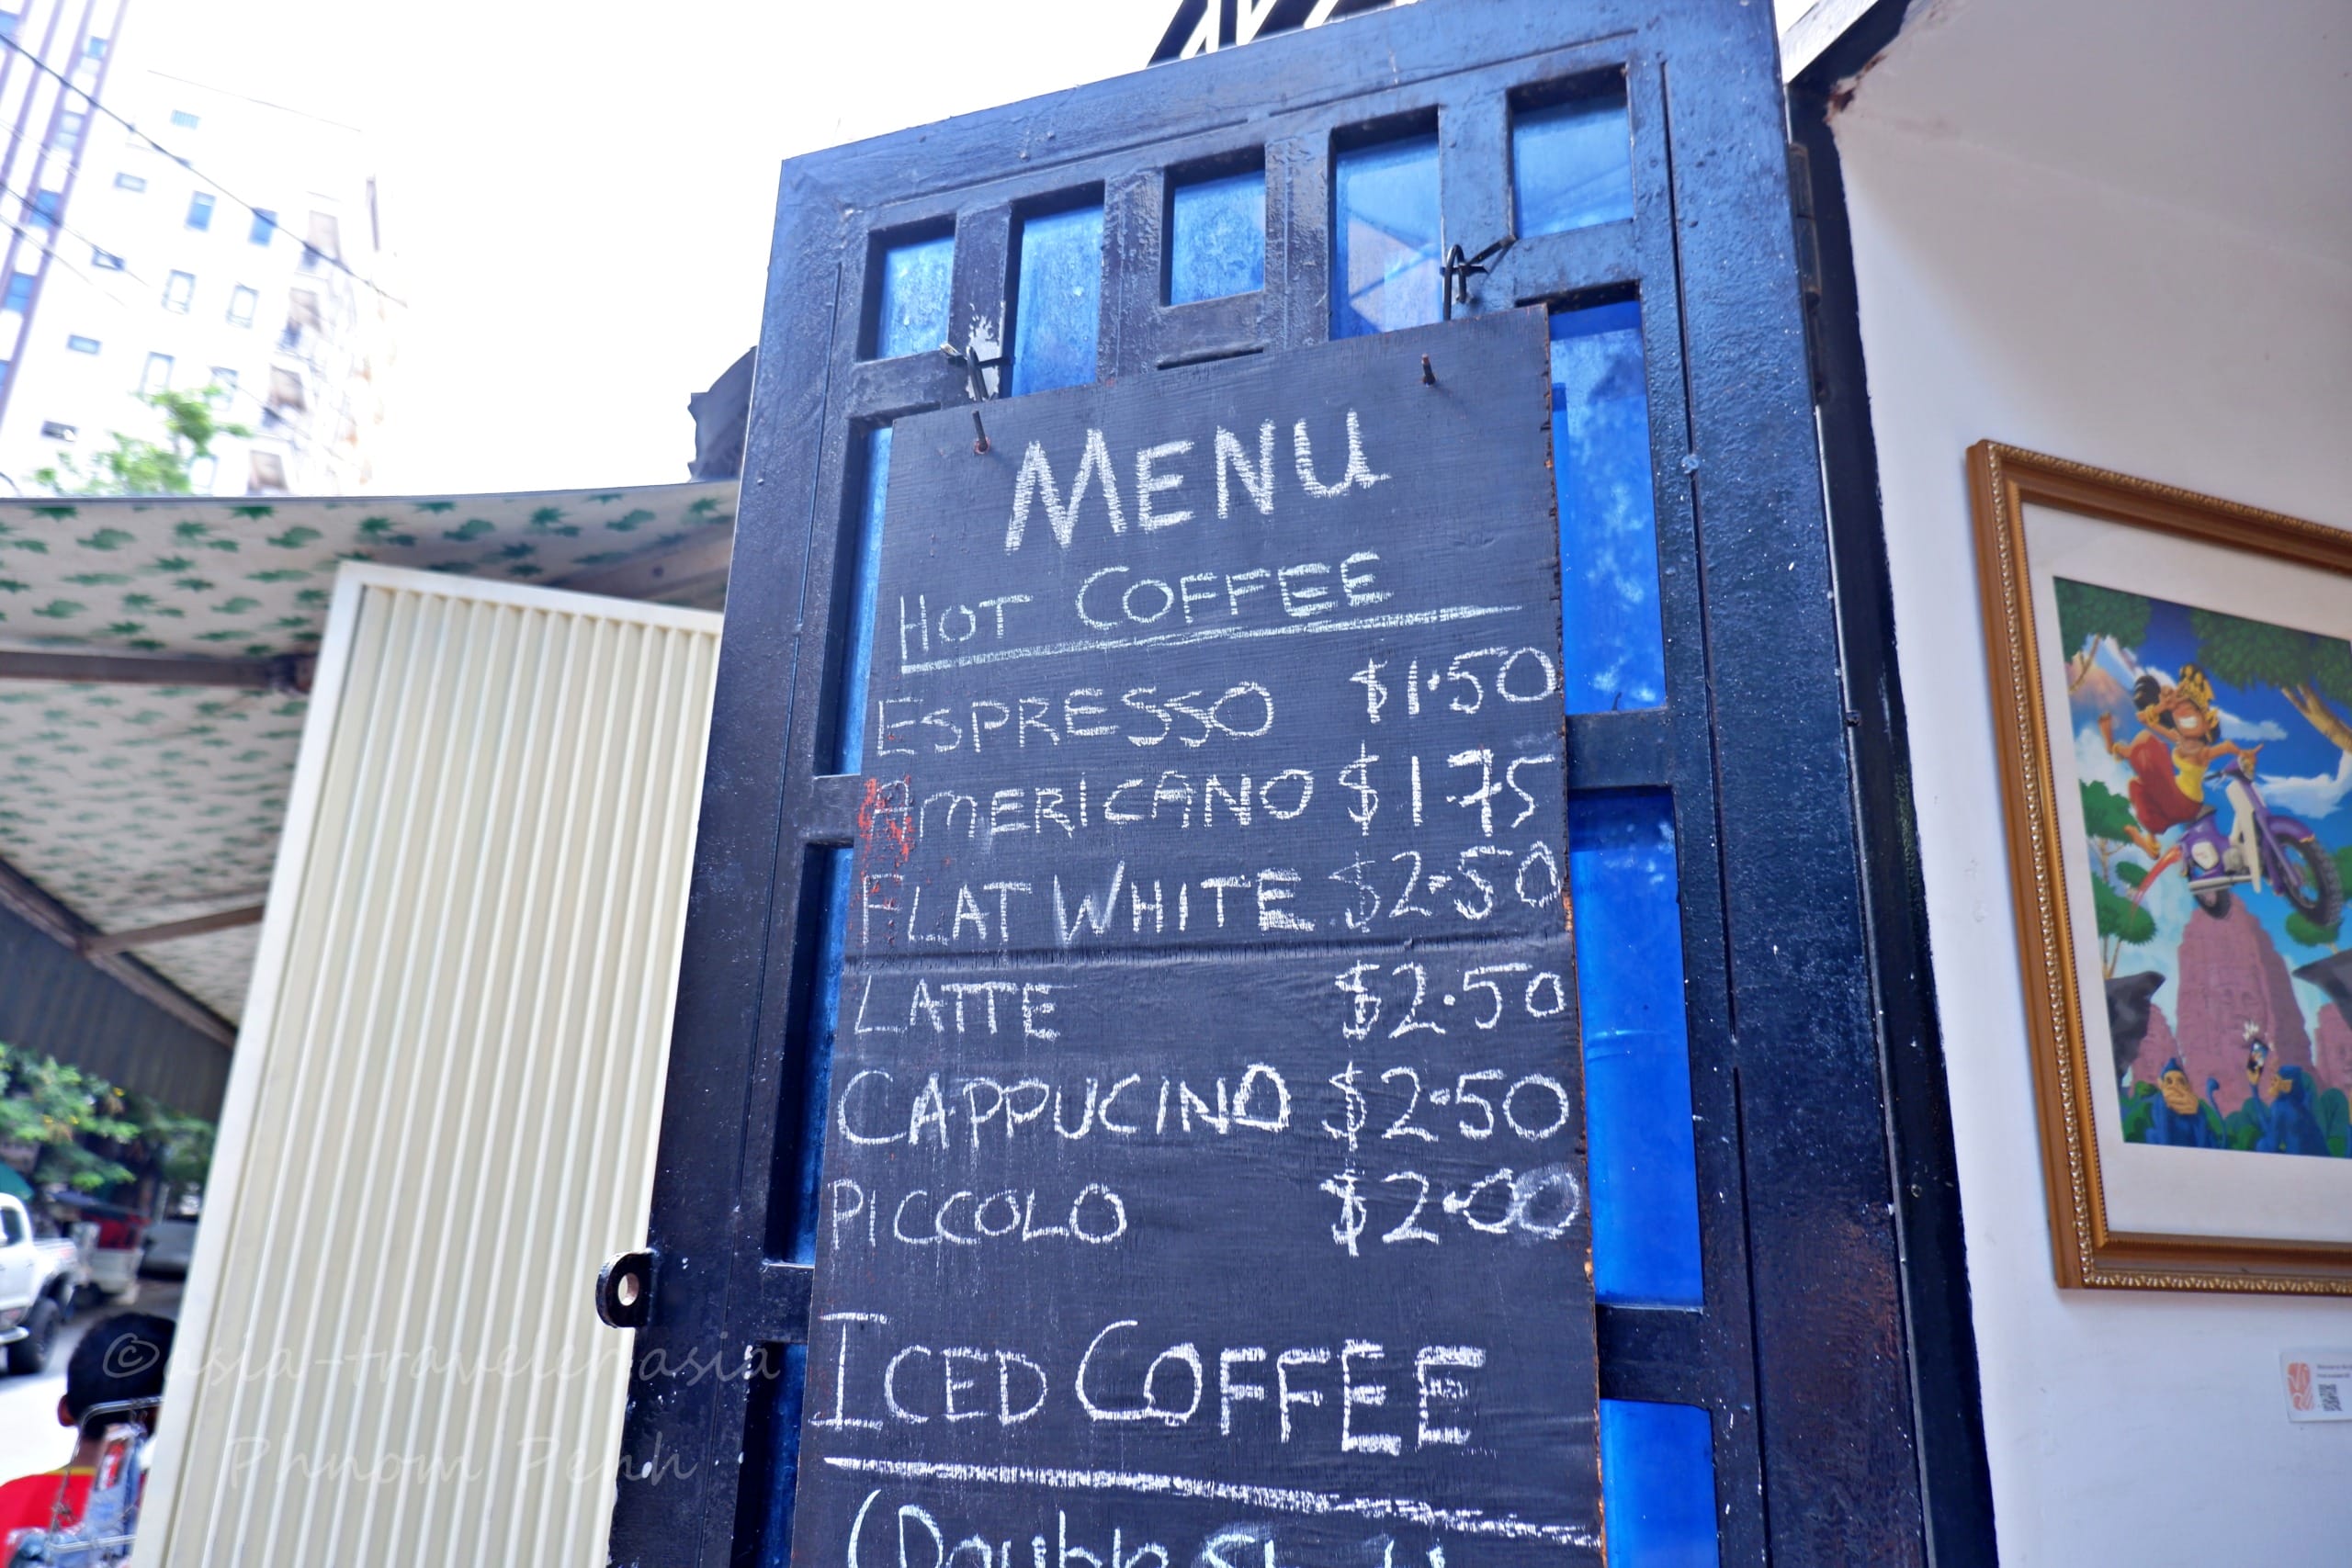 MENU
HOT COFFEE
ESPRESSO $1.50
AMERICANO $1.75
FLAT WHITE $2.50
LATTE $2.50
CAPPUCINO $2.50
PICCOLO $2.00
ICED COFFEE
(Double
©asia-traveler.asia
Phnom Penh